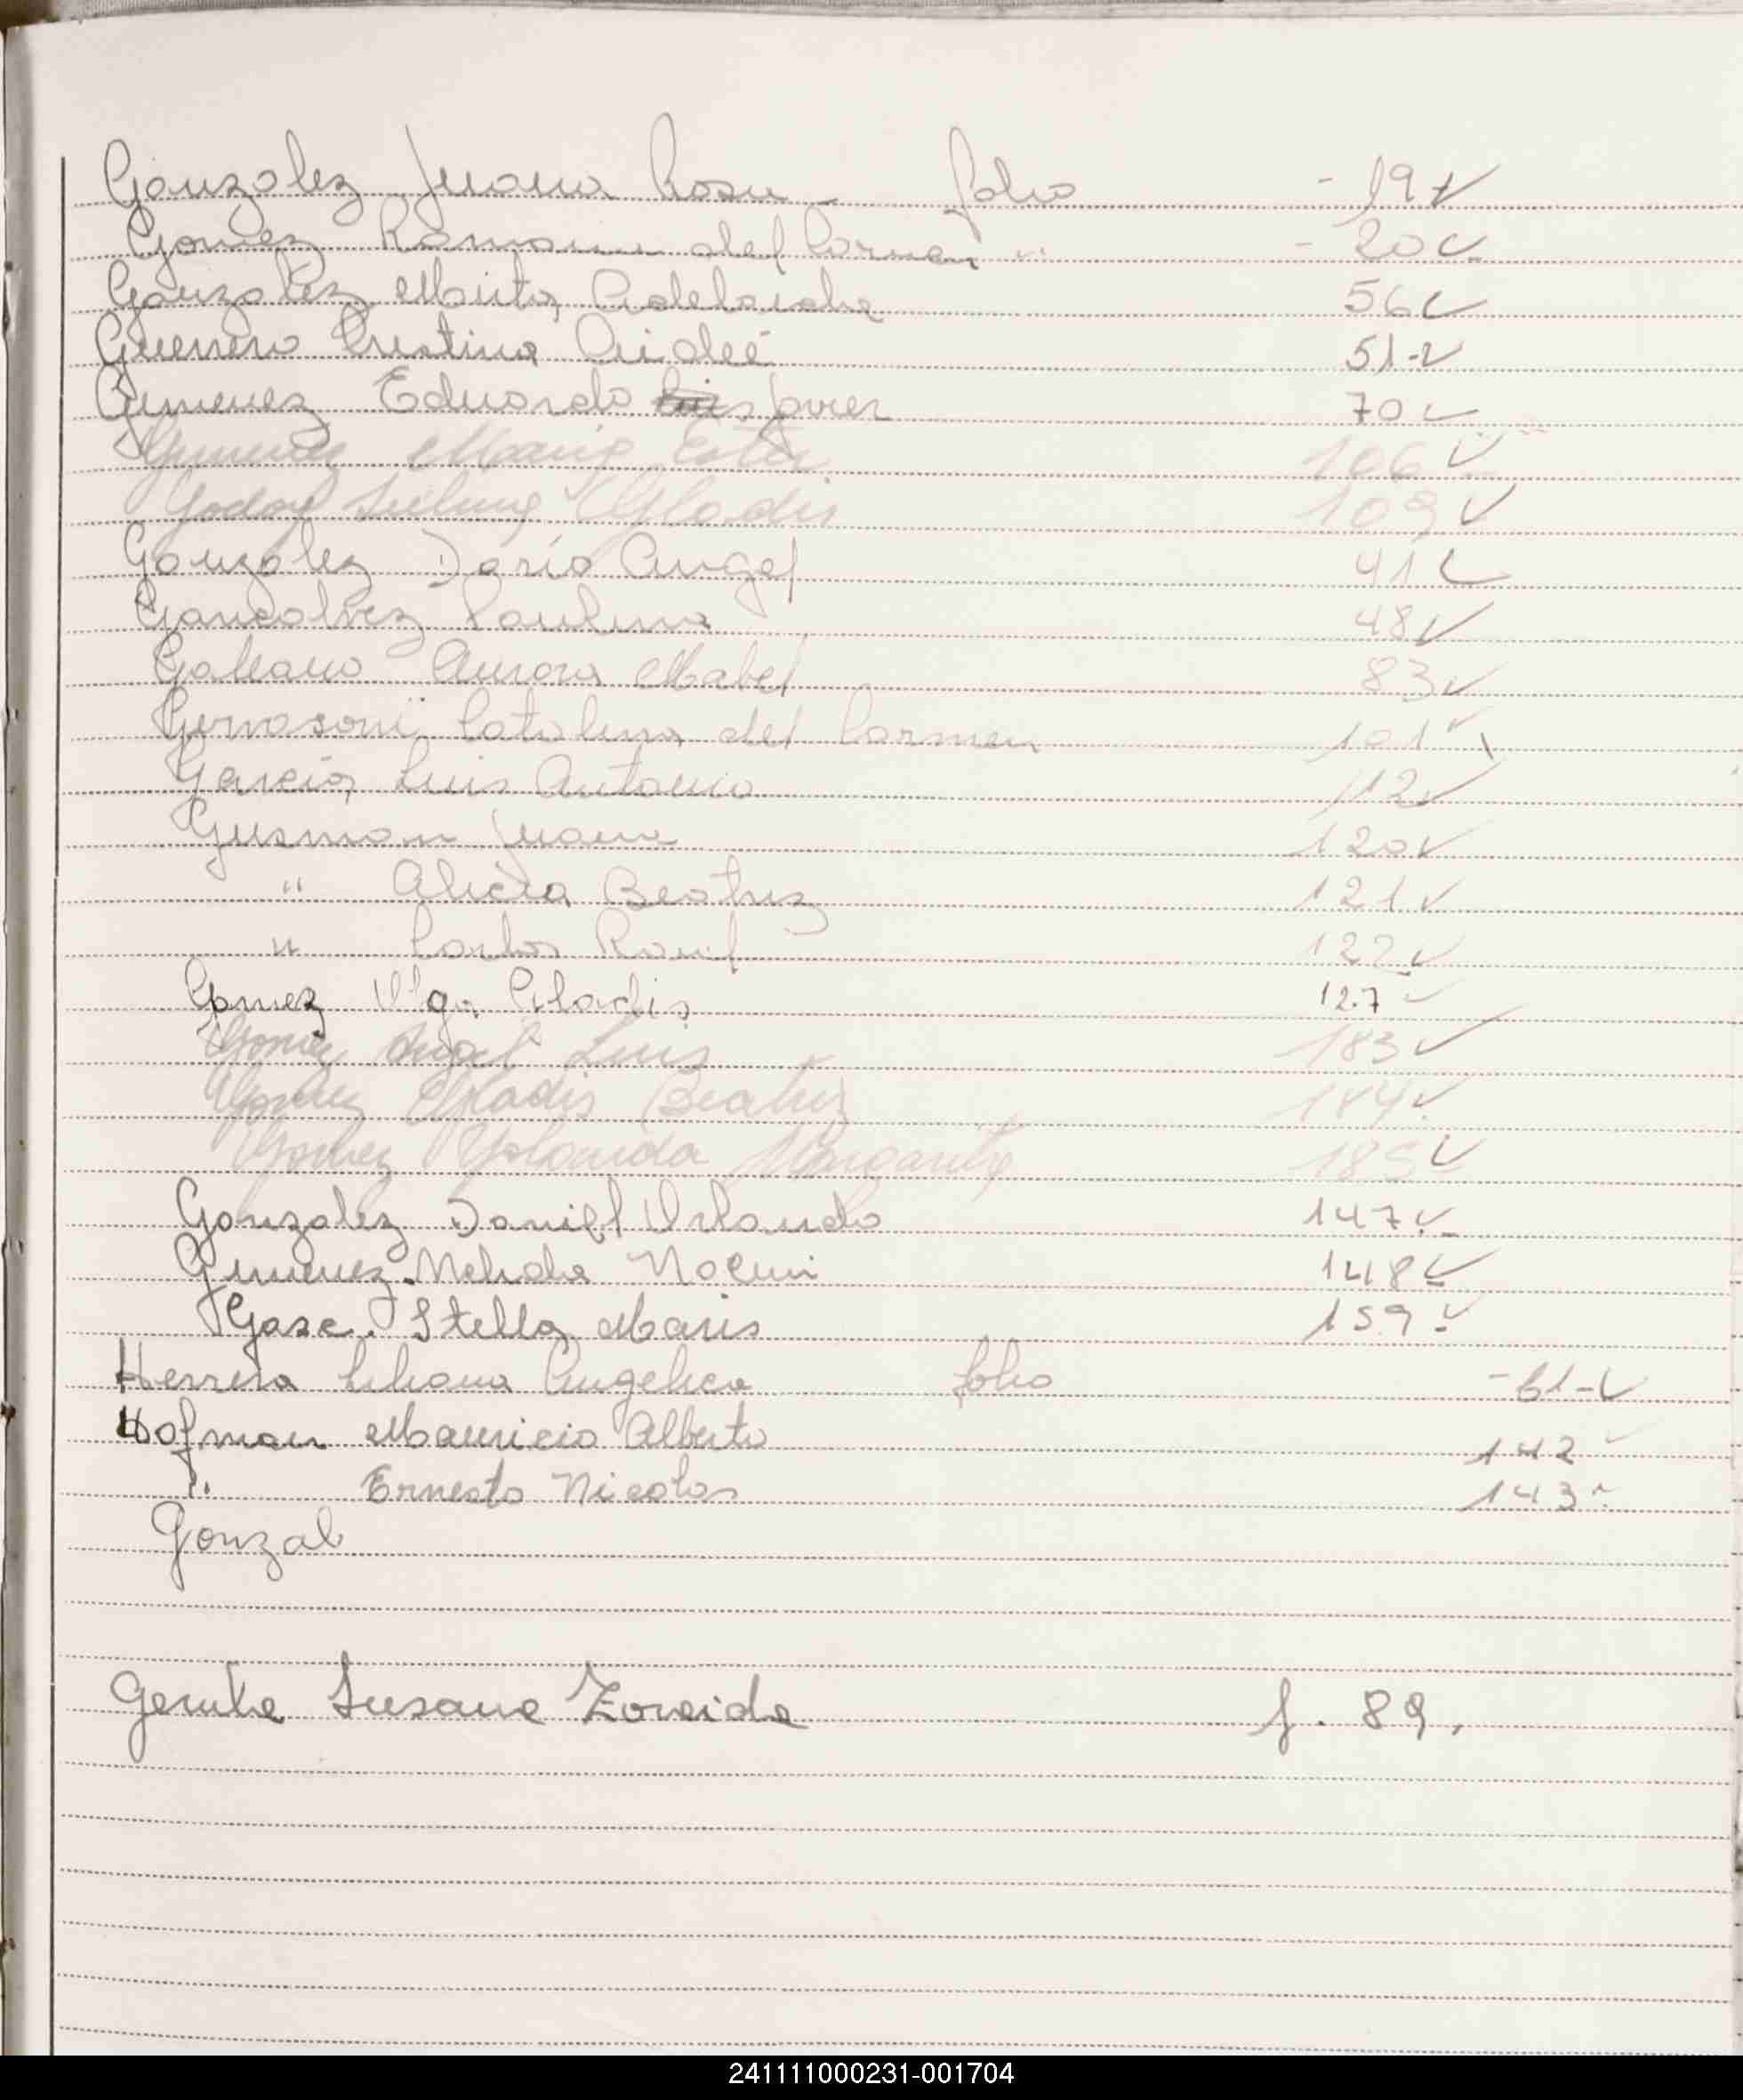 Gonzalez Juana Rosa folio - 19 ✓
Gomez Ramona del Carmen " - 20 ✓
Gonzalez Mirta Adelaida 56 ✓
Guerrero Cristina Aideé 51 - ✓
Gimenez Eduardo Javier 70 ✓
Gimenez Maria Ester 106 ✓
Godoy Gladis 109 ✓
Gonzalez Dario Angel 41 ✓
Goncalvez Paulina 48 ✓
Galeano Aurora Mabel 83 ✓
Gervasoni Catalina del Carmen 101 ✓
Garcia Luis Antonio 112 ✓
Gusman Juana 120 ✓
" Alicia Beatriz 121 ✓
" Carlos Raul 122 ✓
Gomez Olga Gladis 127 ✓
Gomez Angel Luis 183 ✓
Gomez Gladis Beatriz 184 ✓
Gomez Yolanda Margarita 185 ✓
Gonzalez Daniel Orlando 147 ✓
Gimenez Nelida Noemi 148 ✓
Gase Stella Maris 159 ✓
Herrera Liliana Angelica folio - 61 - ✓
Hofman Mauricio Alberto 142 ✓
" Ernesto Nicolas 143 ✓
Gonzal
Susana Zoraida f. 89.
241111000231-001704